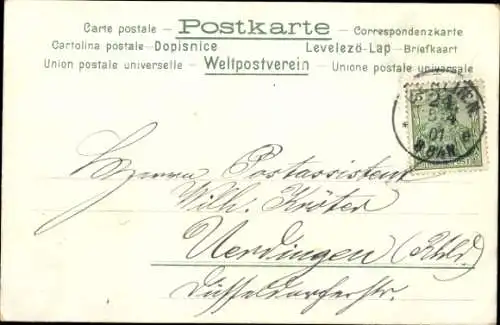 Carte postale – Postkarte – Correspondenzkarte
Cartolina postale – Dopisnice Levelezö-Lap – Briefkaart
Union postale universelle – Weltpostverein – Unione postale universale
5 4
01
Herrn Postassistent
Wilh. Kröter
Uerdingen (Rhld.)
Düsseldorferstr.